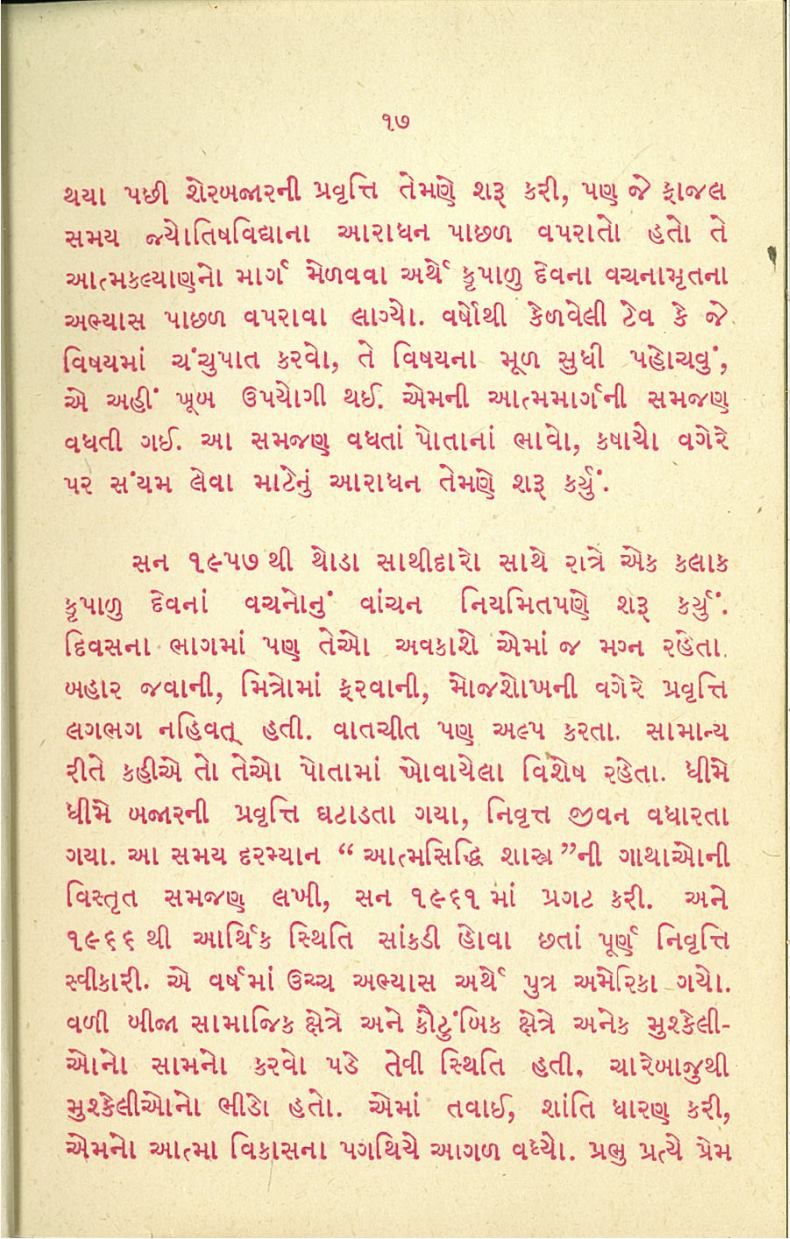 ૧૭
થયા પછી શેરબજારની પ્રવૃત્તિ તેમણે શરૂ કરી, પણ જે ફાજલ
સમય જ્યોતિષવિદ્યાના આરાધન પાછળ વપરાતો હતો તે
આત્મકલ્યાણનો માર્ગ મેળવવા અર્થે કૃપાળુ દેવના વચનામૃતના
અભ્યાસ પાછળ વપરાવા લાગ્યો. વર્ષોથી કેળવેલી ટેવ કે જે
વિષયમાં ચંચુપાત કરવો, તે વિષયના મૂળ સુધી પહોચવું,
એ અહીં ખૂબ ઉપયોગી થઈ. એમની આત્મમાર્ગની સમજણ
વધતી ગઈ. આ સમજણ વધતાં પોતાનાં ભાવો, કષાયો વગેરે
પર સંયમ લેવા માટેનું આરાધન તેમણે શરૂ કર્યું.
સન ૧૯૫૭ થી થોડા સાથીદારો સાથે રાત્રે એક કલાક
કૃપાળુ દેવનાં વચનોનું વાંચન નિયમિતપણે શરૂ કર્યું.
દિવસના ભાગમાં પણ તેઓ અવકાશે એમાં જ મગ્ન રહેતા.
બહાર જવાની, મિત્રોમાં ફરવાની, મોજશોખની વગેરે પ્રવૃત્તિ
લગભગ નહિવત્ હતી. વાતચીત પણ અલ્પ કરતા. સામાન્ય
રીતે કહીએ તો તેઓ પોતામાં ખોવાયેલા વિશેષ રહેતા. ધીમે
ધીમે બજારની પ્રવૃત્તિ ઘટાડતા ગયા, નિવૃત્ત જીવન વધારતા
ગયા. આ સમય દરમ્યાન “ આત્મસિદ્ધિ શાસ્ત્ર ”ની ગાથાઓની
વિસ્તૃત સમજણ લખી, સન ૧૯૬૧ માં પ્રગટ કરી. અને
૧૯૬૬ થી આર્થિક સ્થિતિ સાંકડી હોવા છતાં પૂર્ણ નિવૃત્તિ
સ્વીકારી. એ વર્ષમાં ઉચ્ચ અભ્યાસ અર્થે પુત્ર અમેરિકા ગયો.
વળી બીજા સામાજિક ક્ષેત્રે અને કૌટુંબિક ક્ષેત્રે અનેક મુશ્કેલી-
ઓનો સામનો કરવો પડે તેવી સ્થિતિ હતી. ચારેબાજુથી
મુશ્કેલીઓનો ભીડો હતો. એમાં તવાઈ, શાંતિ ધારણ કરી,
એમનો આત્મા વિકાસના પગથિયે આગળ વધ્યો. પ્રભુ પ્રત્યે પ્રેમ